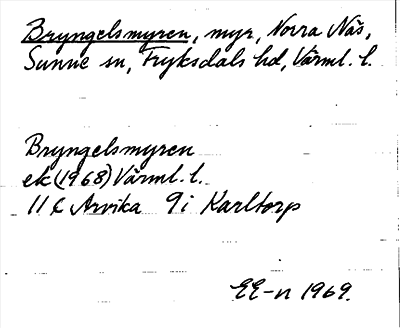 Bryngelsmyren, myr, Norra Näs,
Sunne sn, Fryksdals hd, Värml. l.
Bryngelsmyren
ek (1968) Värml. l.
11 C Arvika 9i Karltorp
EE-n 1969.